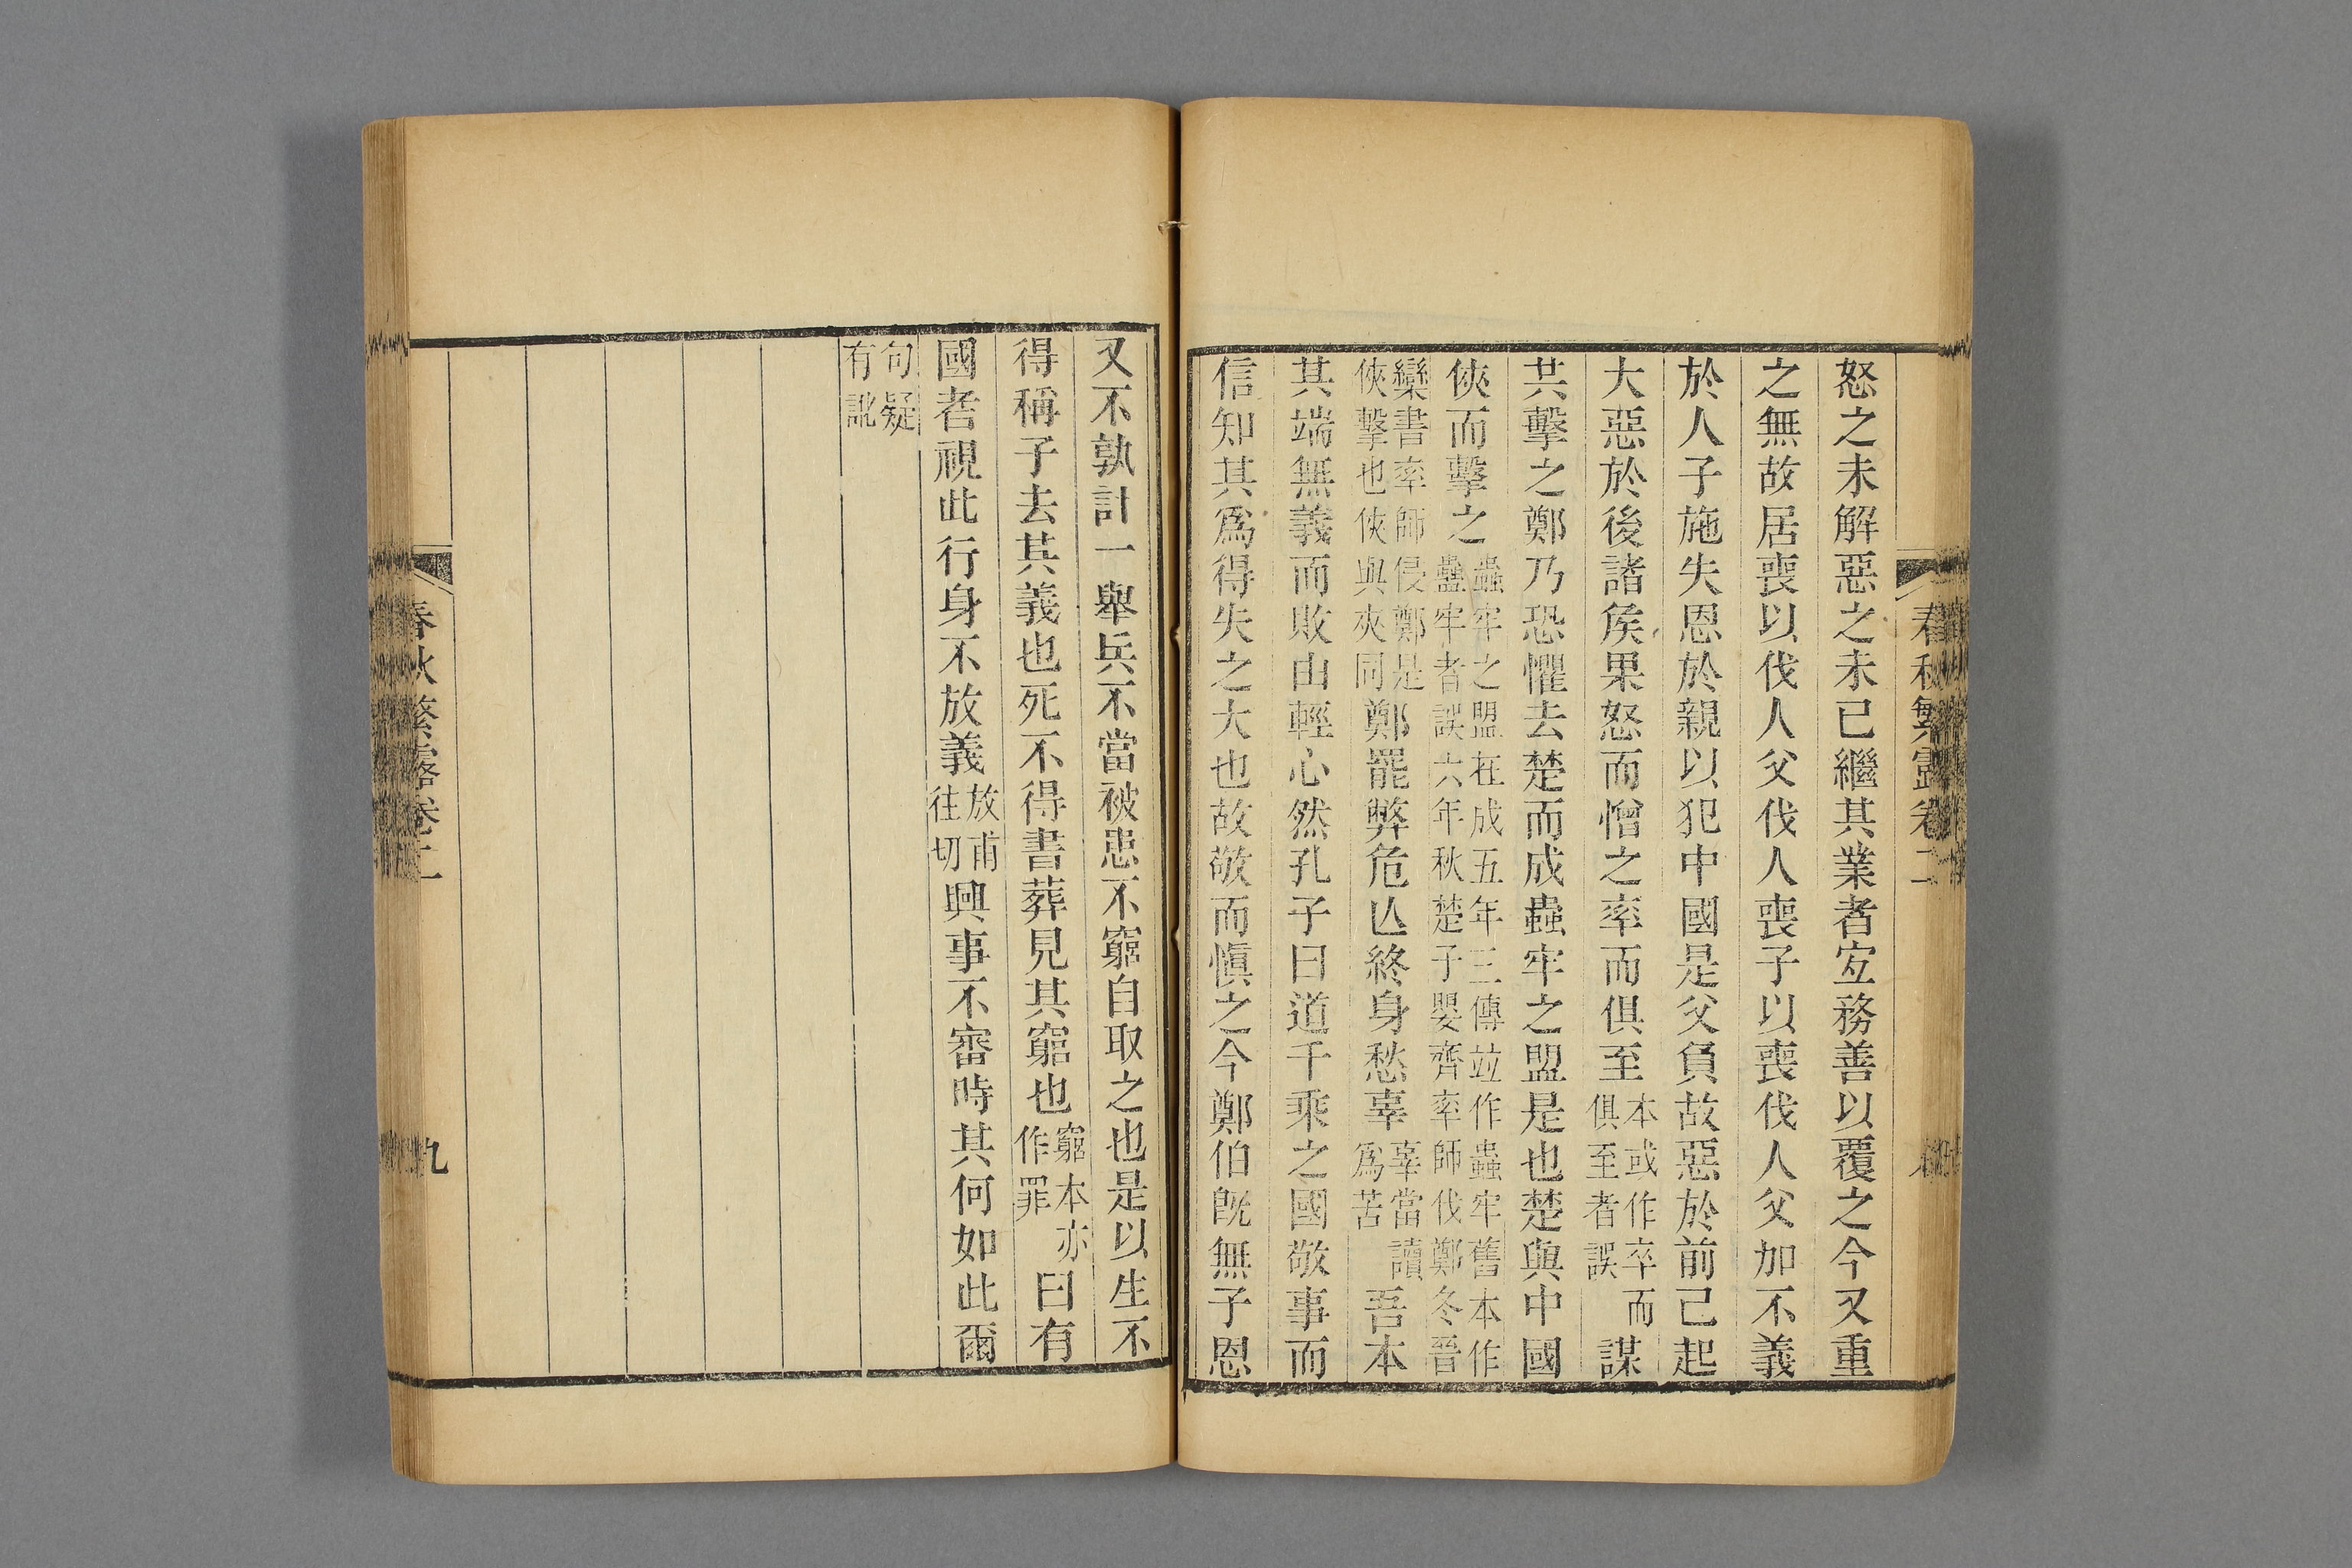 春秋繁露卷二
怒之未解惡之未已繼其業者宐務善以覆之今又重
之無故居喪以伐人父伐人喪子以喪伐人父加不義
於人子施失恩於親以犯中國是父負故惡於前己起
大惡於後諸矦果怒而憎之率而俱至本或作卒而俱至者誤謀
共擊之鄭乃恐懼去楚而成蟲牢之盟是也楚與中國
俠而擊之蟲牢之盟在成五年三傳竝作蟲牢舊本作蠱牢者誤六年秋楚子嬰齊率師伐鄭冬晉
欒書率師侵鄭是俠擊也俠與夾同鄭罷弊危亾終身愁辜辜當讀爲苦吾本
其端無義而敗由輕心然孔子曰道千乘之國敬事而
信知其爲得失之大也故敬而愼之今鄭伯旣無子恩
又不孰計一舉兵不當被患不窮自取之也是以生不
得稱子去其義也死不得書葬見其窮也窮本亦作罪曰有
國者視此行身不放義放甫往切興事不審時其何如此爾
句疑有訛
春秋繁露卷二
九